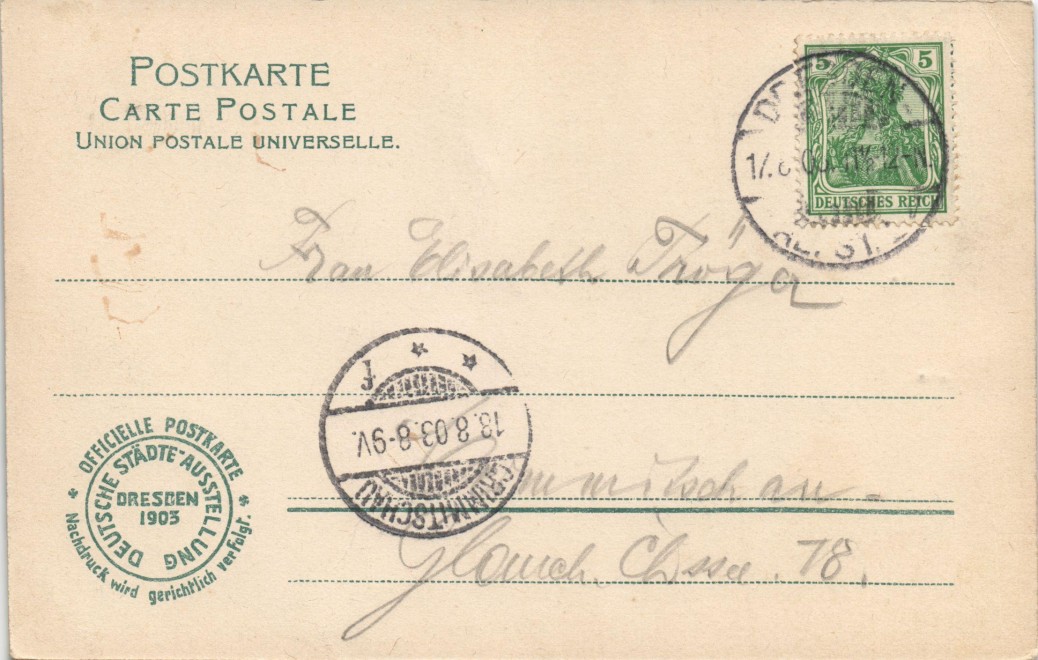 POSTKARTE
CARTE POSTALE
UNION POSTALE UNIVERSELLE.
5 5
DEUTSCHES REICH
Frau Elisabeth Tröga
18.8.03.8-9V.
CRIMMITSCHAU
Crimmitschau-
Glauch. Chssee. 18.
OFFICIELLE POSTKARTE
DEUTSCHE STÄDTE-AUSSTELLUNG
DRESDEN
1903
Nachdruck wird gerichtlich verfolgt.